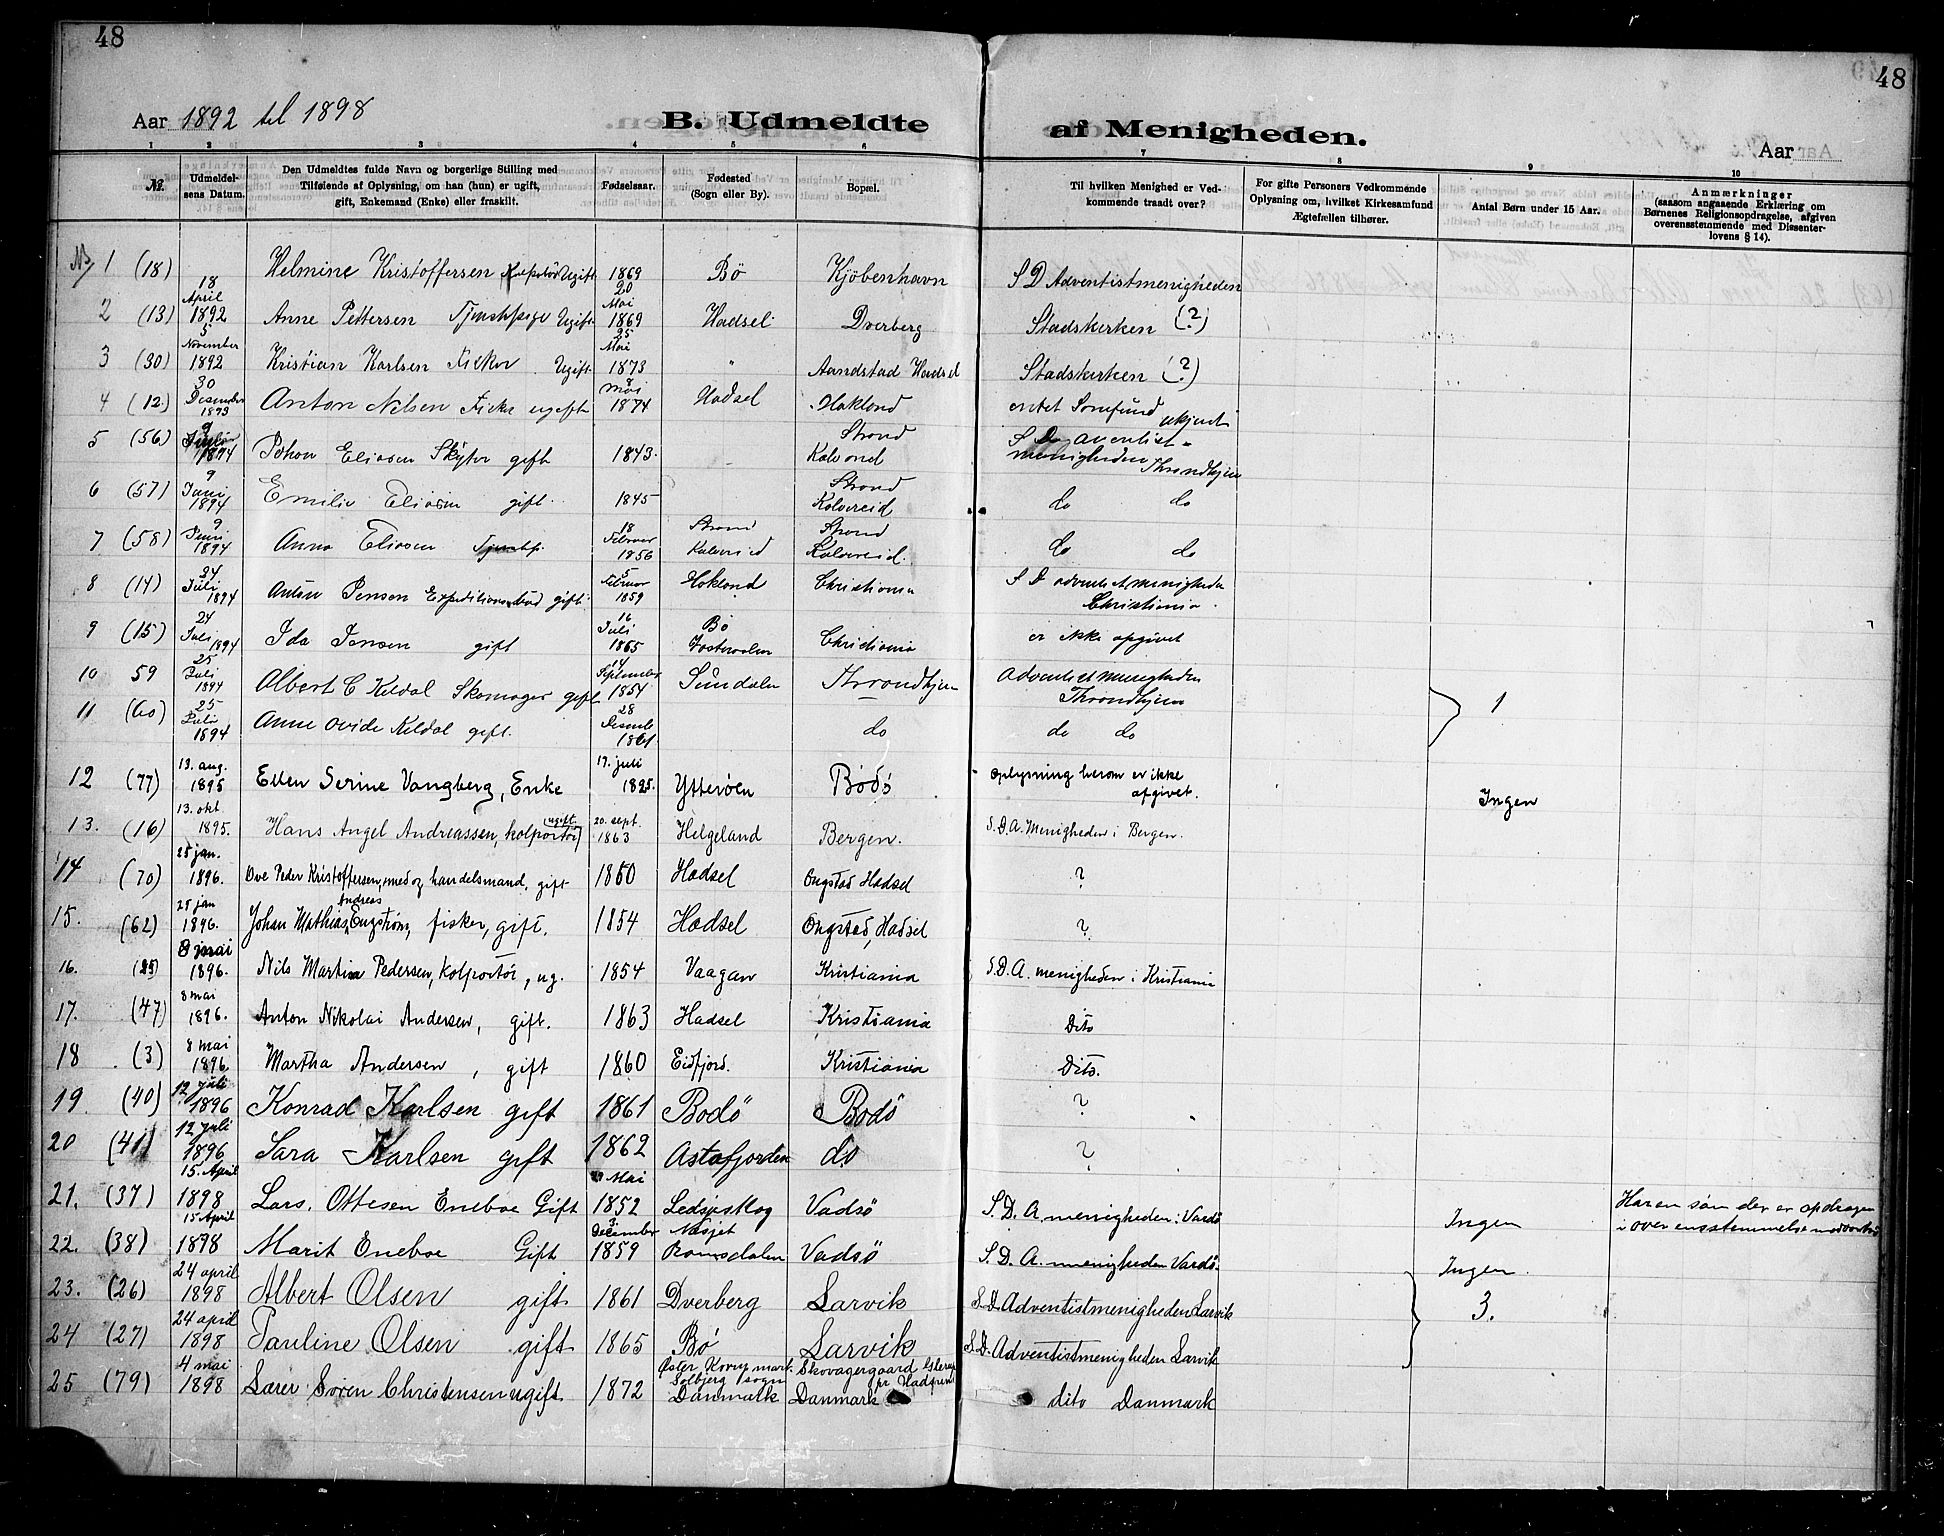 48
48
Aar 1892 til 1898
B. Udmeldte af Menigheden.
Aar
1 2 3 4 5 6 7 8 9 10
№.
Udmeldel-
sens Datum.
Den Udmeldtes fulde Navn og borgerlige Stilling med
Tilføiende af Oplysning, om han (hun) er ugift,
gift, Enkemand (Enke) eller fraskilt.
Fødselsaar.
Fødested
(Sogn eller By).
Bopæl.
Til hvilken Menighed er Ved-
kommende traadt over?
For gifte Personers Vedkommende
Oplysning om, hvilket Kirkesamfund
Ægtefællen tilhører.
Antal Børn under 15 Aar.
Anmærkninger
(saasom angaaende Erklæring om
Børnenes Religionsopdragelse, afgiven
overensstemmende med Dissenter-
lovens § 14).
№ 1 (18) Helmine Kristoffersen Kolportør Ugift 1869 Bö Kjöbenhavn S D Adventistmenigheden
2 (13) 18 April 1892 Anne Pettersen Ugift 20 Mai 1869 Hadsel Dverberg Statskirken (?)
3 (30) 5 November 1892 Kristian Karlsen Fisker Ugift 25 Mai 1873 " Aandstad Hadsel Statskirken (?)
4 (12) 30 Desember 1893 Anton Nilsen Fisker ugift 8 Mai 1874 Hadsel Hokland entet Samfund ukjent
5 (56) 9 1894 Johan Eliasen gift 1843 Strand S D aventist-
menigheden Throndhjem
6 (57) 9 Juni 1894 Emilie Eliasen gift 1845 Strand Kolvereid do do
7 (58) 9 Juni 1894 Anna Eliasen Tjenstp. 18 Februar 1856 Strand Kolvereid Strand Kolvereid. do do
8 (14) 24 Juli 1894 Anton Jensen Expeditionsbud gift 5 Februar 1859 Hokland Christiania S D adventistmenigheden
Christiania
9 (15) 24 Juli 1894 Ida Jensen gift 16 Juli 1865 Bö Vesteraalen Christiania er ikke opgivet
10 59 25 Juli 1894 Albert C Keldal Skomager gift 14 September 1854 Sundalen Throndhjem Adventistmenigheden
Throndhjem 1
11 (60) 25 Juli 1894 Anne Ovide Keldal gift. 28 Desemb 1861 do do do
12 (77) 19. aug. 1895 Ellen Serine Vangberg, Enke 17. juli 1825. Ytterøen Bodö Oplysning herom er ikke
afgivet. Ingen
13. (16) 13. okt 1895. Hans Angel Andreassen, kolportör (ugift) 20. sept. 1863 Helgeland Bergen. S.D.A. Menigheden i Bergen.
14 (70) 25 jan. 1896. Ove Peder Kristoffersen, handelsmand, gift 1850 Hadsel Ongstad Hadsel ?
15. (62) 25 jan 1896. Johan Mathias Andreas Engström, fisker, gift. 1854 Hadsel Ongstad, Hadsel ?
16. (25) 8 mai 1896. Nils Martin Pedersen, Kolportör, ug. 1854 Vaagan Kristiania S.D.A. menigheden i Kristiania
17. (47) 8 mai 1896. Anton Nikolai Andersen, gift. 1863 Hadsel Kristiania Dito
18 (3) 8 mai 1896. Martha Andersen, gift 1860 Eidfjord. Kristiania Dito.
19 (40) 12 juli 1896 Konrad Karlsen gift 1861 Bodö Bodö ?
20 (41) 12 juli 1896 Sara Karlsen gift 1862 Astafjorden do ?
21. (37) 15. April 1898 Lars. Ottesen Eneboe Gift Mai 1852 Vadsö S. D. A menigheden i Vardö Ingen Har en sön der er opdragen
i overensstemmelse
22. (38) 15 April 1898 Marit Eneboe Gift 3 December 1859 Næsjet Romsdalen Vadsö S. D. A. menigheden Vardö. Ingen
23. (26) 24 april 1898 Albert Olsen gift 1861 Dverberg Larvik S.D. Adventistmenigheden Larvik 3.
24 (27) 24 april 1898 Pauline Olsen gift 1865 Bö Larvik S.D. Adventistmenigheden Larvik
25 (79) 4 mai 1898 Sören Christensen ugift 1872 Öster Solbjerg sogn Danmark Skovagergaard pr Danmark dito Danmark